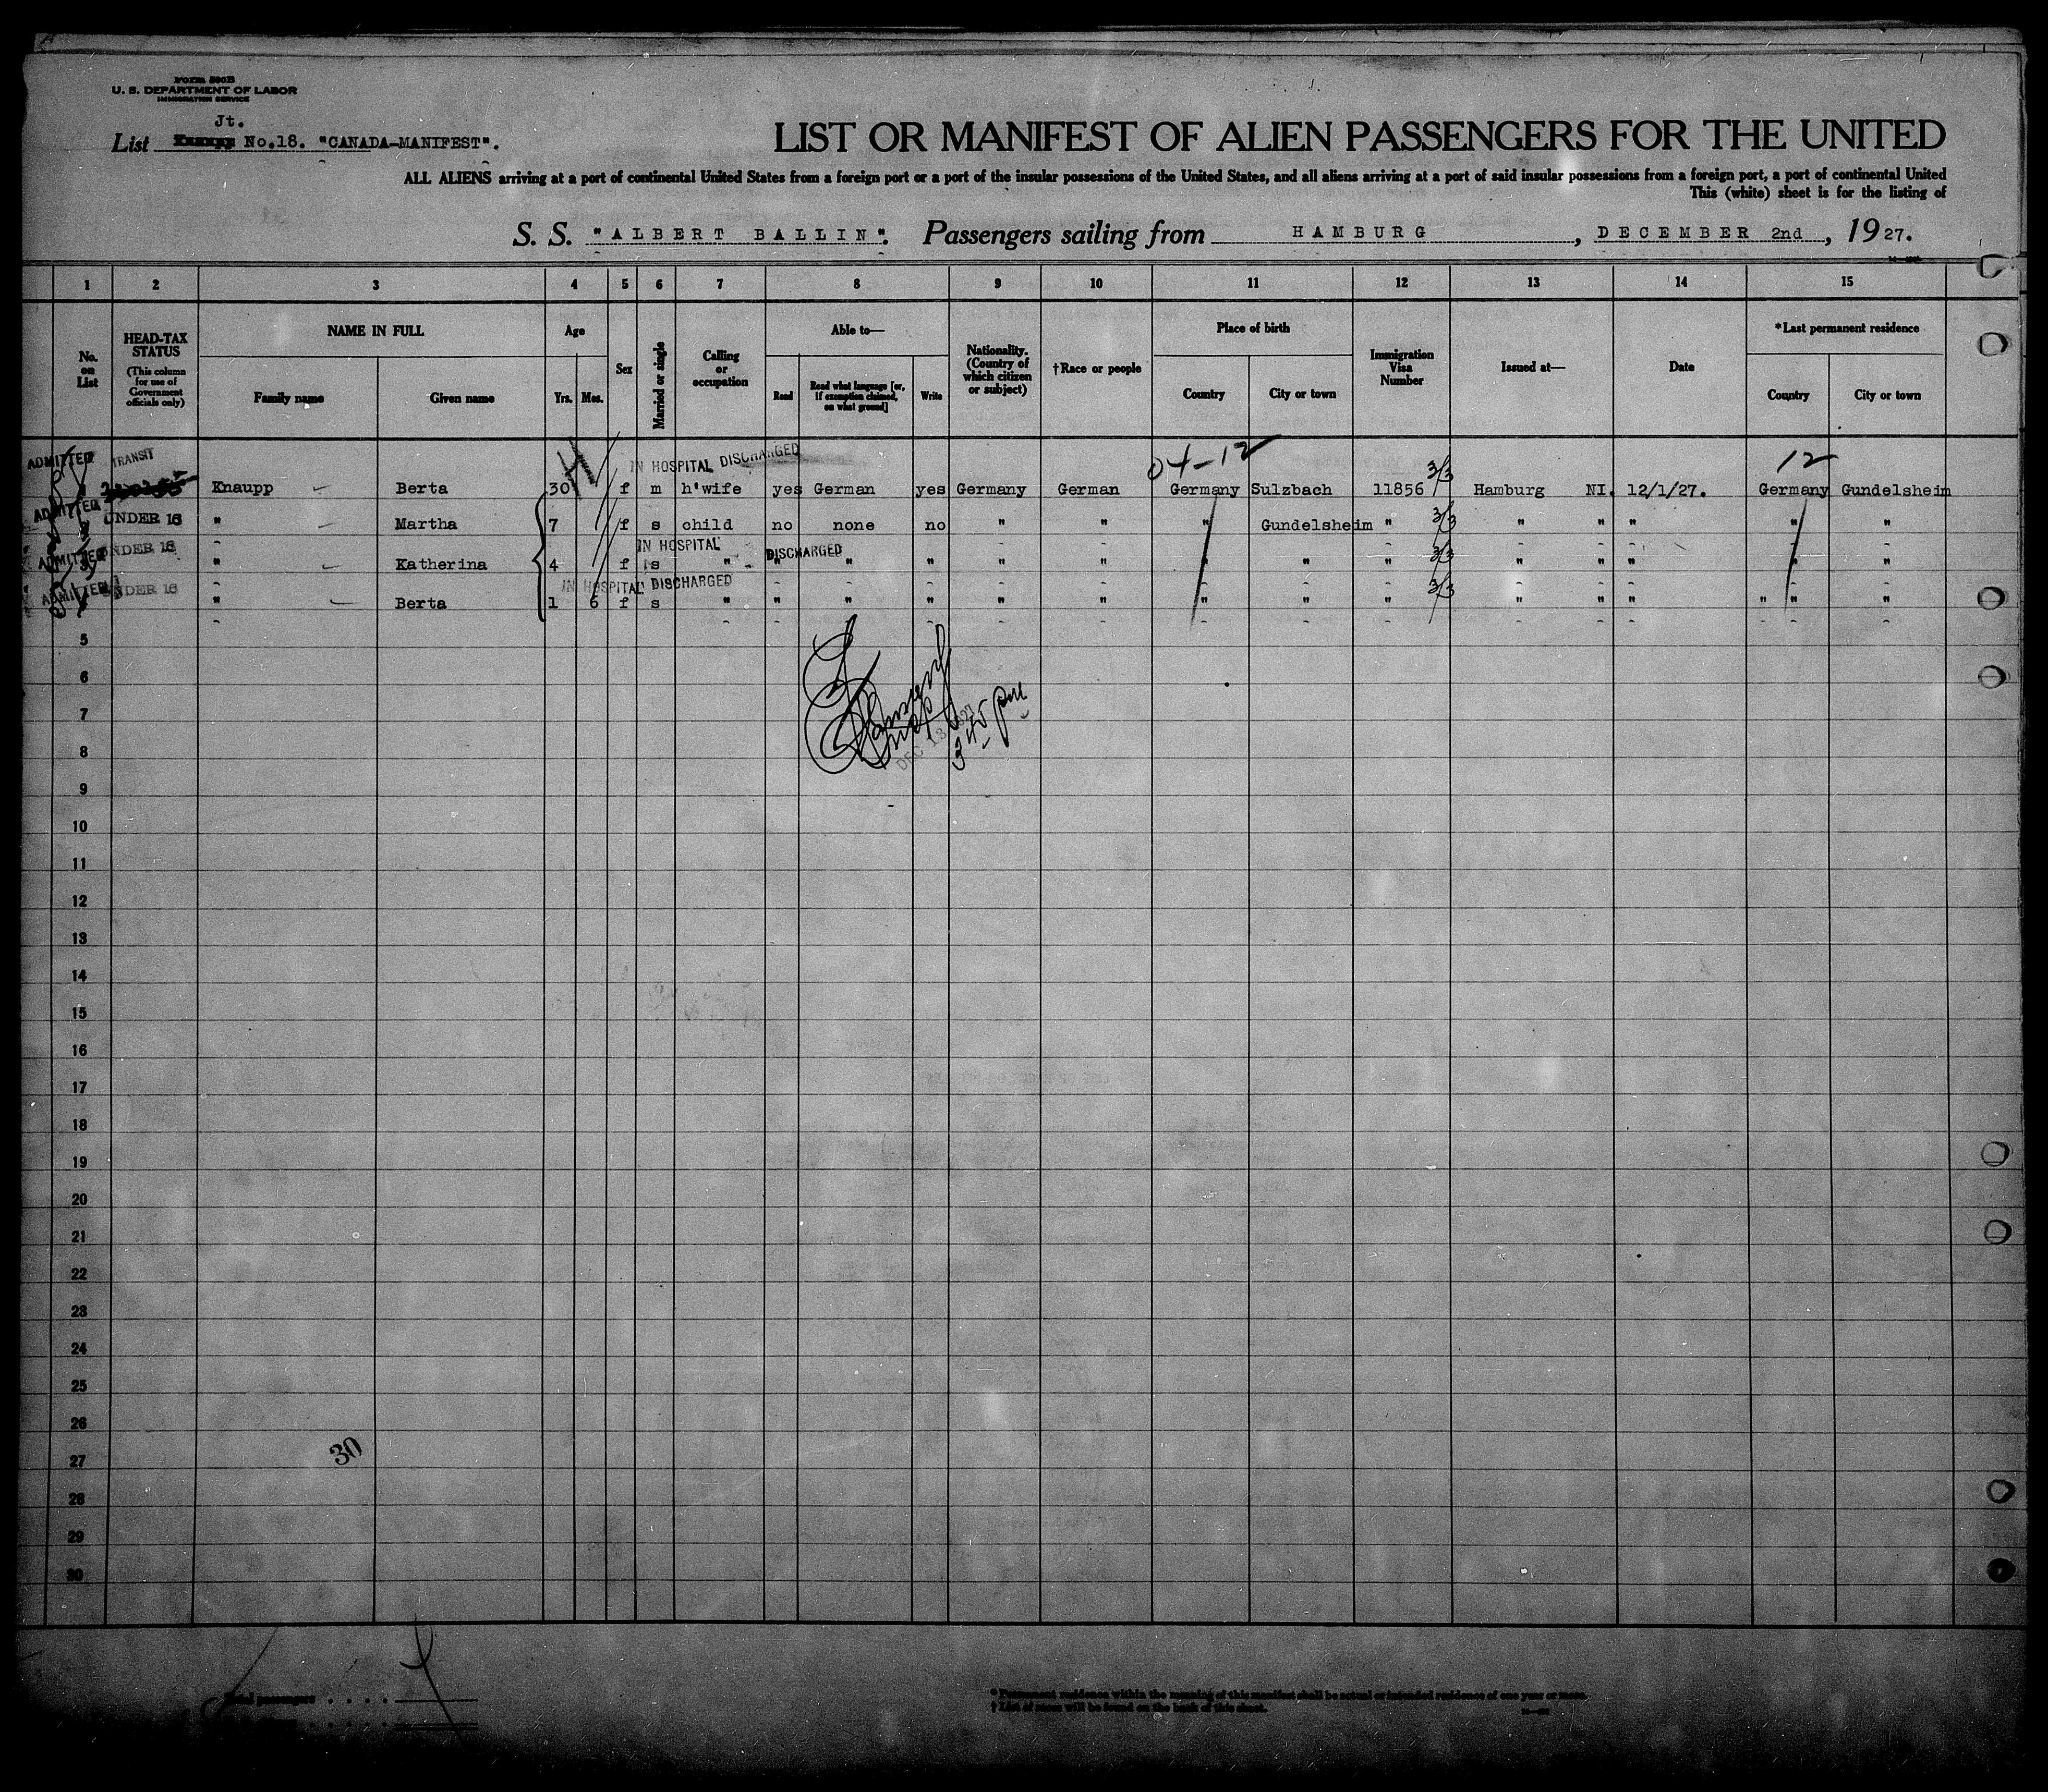 Form 500B
U. S. DEPARTMENT OF LABOR
IMMIGRATION SERVICE
Jt.
List No.18. "CANADA-MANIFEST".
LIST OR MANIFEST OF ALIEN PASSENGERS FOR THE UNITED
ALL ALIENS arriving at a port of continental United States from a foreign port or a port of the insular possessions of the United States, and all aliens arriving at a port of said insular possessions from a foreign port, a port of continental United
This (white) sheet is for the listing of
S. S. "ALBERT BALLIN". Passengers sailing from HAMBURG, DECEMBER 2nd, 1927.
1 2 3 4 5 6 7 8 9 10 11 12 13 14 15
No. on List
HEAD-TAX STATUS (This column for use of Government officials only)
NAME IN FULL
Family name Given name
Age
Yrs. Mos.
Sex
Married or single
Calling or occupation
Able to—
Read Read what language [or, if exemption claimed, on what ground] Write
Nationality. (Country of which citizen or subject)
†Race or people
Place of birth
Country City or town
Immigration Visa Number
Issued at—
Date
*Last permanent residence
Country City or town
ADMITTED TRANSIT IN HOSPITAL DISCHARGED 04-12 12
Knaupp Berta 30 f m h'wife yes German yes Germany German Germany Sulzbach 11856 3/3 Hamburg NI. 12/1/27. Germany Gundelsheim
ADMITTED UNDER 16 " Martha 7 f s child no none no " " " Gundelsheim " 3/3 " " " " "
IN HOSPITAL DISCHARGED
ADMITTED UNDER 16 " Katherina 4 f s " " " " " " " " " 3/3 " " " " "
IN HOSPITAL DISCHARGED
ADMITTED UNDER 16 " Berta 1 6 f s " " " " " " " " " 3/3 " " " " " "
5
6
7
DEC 13 1927
3 45 pm
8
9
10
11
12
13
14
15
16
17
18
19
20
21
22
23
24
25
26
30
27
28
29
30
Total passengers . . . .
* Permanent residence within the meaning of this manifest shall be actual or intended residence of one year or more.
† List of races will be found on the back of this sheet.